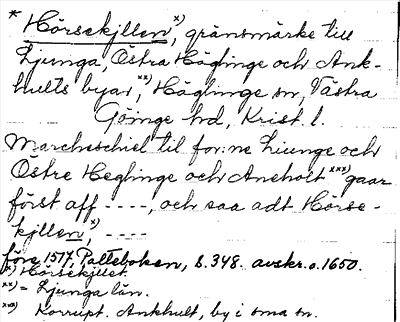 * Hörsekjllen x), gränsmärke till
Ljunga, Östra Häglinge och Ank-
hults byar, xx) Häglinge sn, Västra
Göinge hd, Krist. l.
Marcheschiel til for:ne Liunge och
Östre Heglinge och Aneholt xxx) gaar
först aff ----, och saa adt Hörse-
kjllen, x) ----
före 1577, Palteboken, s. 348. avskr. o. 1650.
x) Hörsekjllet.
xx) = Ljunga län.
xxx) Korrupt. Ankhult, by i sma sn.